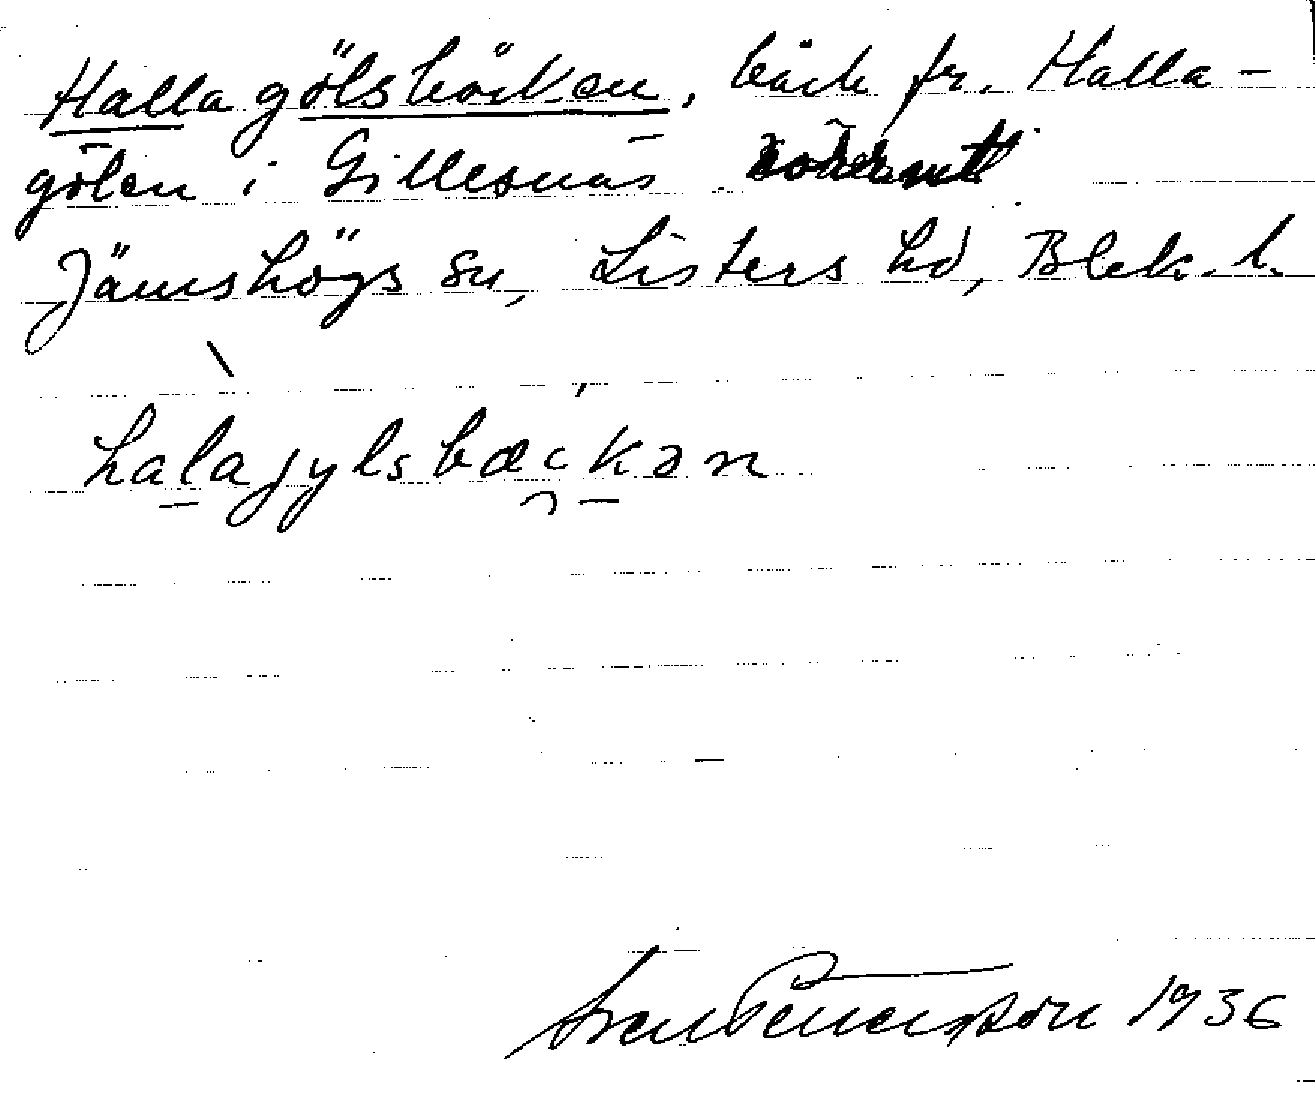 Hallagölsbäcken, bäck fr. Halla-
gölen i Gillesnäs
Jämshögs sn, Listers hd, Blek. l.
halajylsbæckən
Sven Petersson 1936